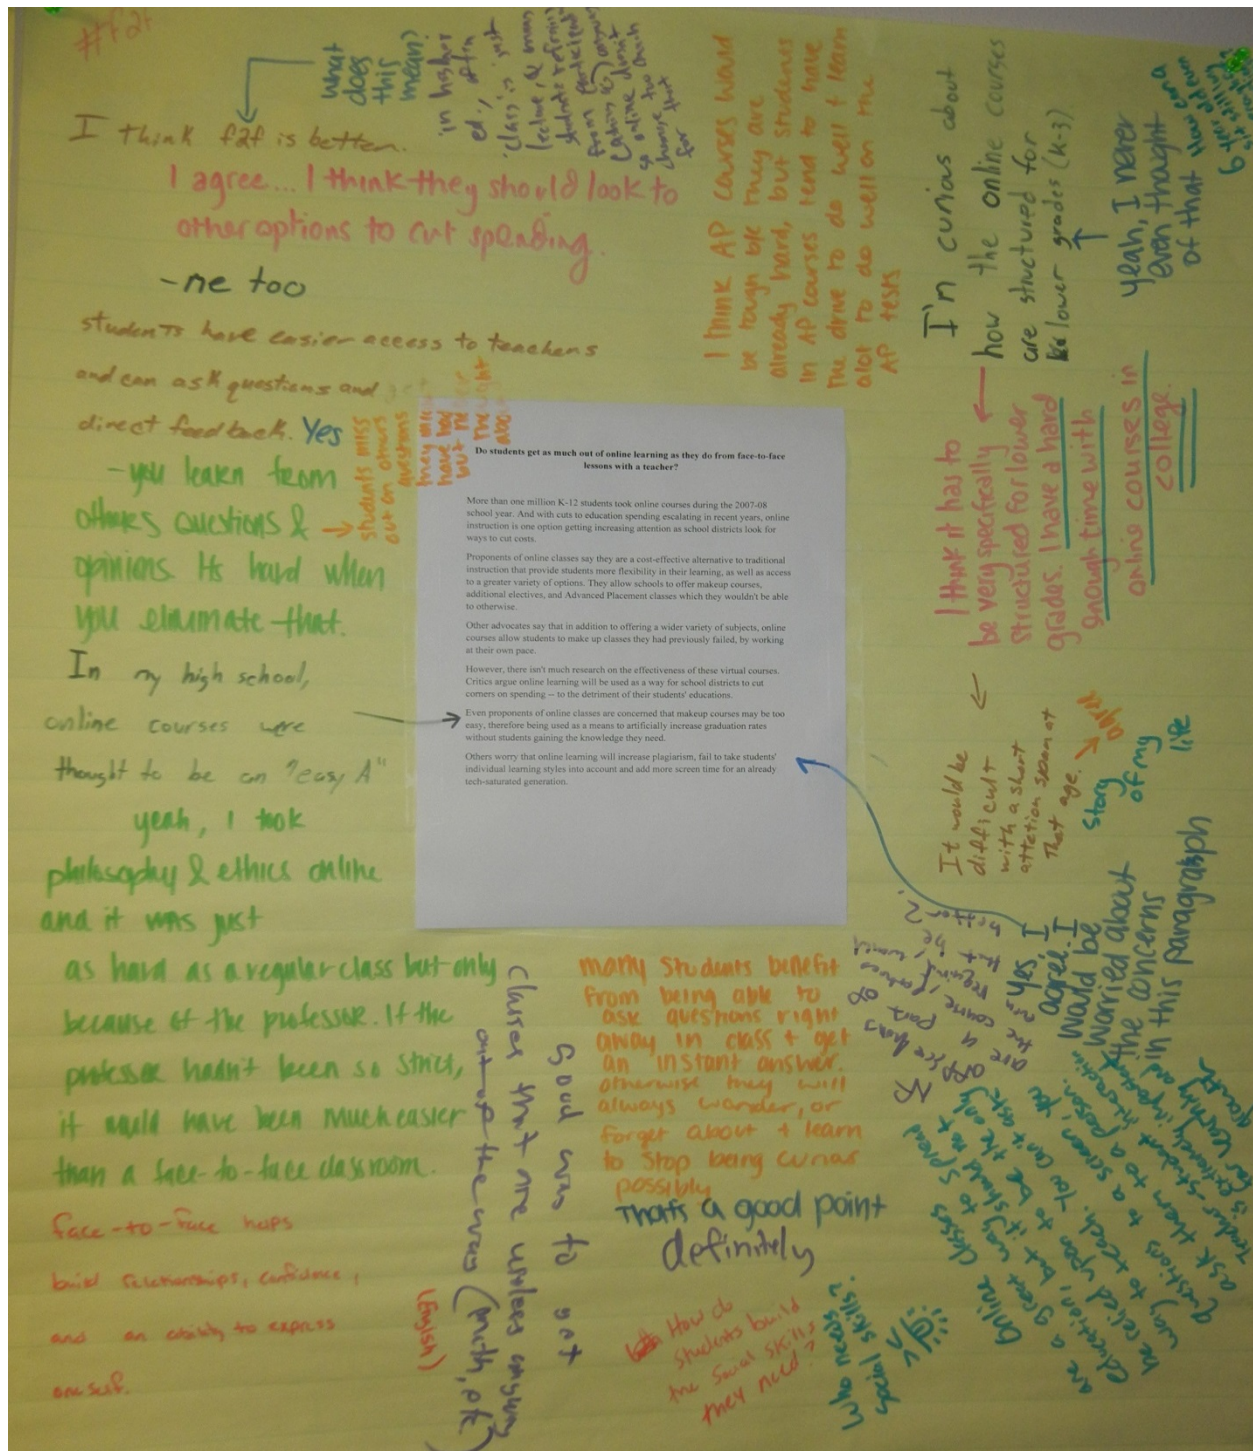 #f2f
what
does
this
mean?
in higher
ed., often
"class" is just
lecture, & many
students refrain
from participating
so online didn't
change that
too much
for
I think f2f is better.
I agree... I think they should look to
other options to cut spending.
-me too
students have easier access to teachers
and can ask questions and get
direct feedback. Yes
-you learn from
others questions &
opinions. Its hard when
you eliminate that.
students miss
out on others
questions
they might
have had
but never
thought
about
In my high school,
online courses were
thought to be an "easy A"
yeah, I took
philosophy & ethics online
and it was just
as hard as a regular class but only
because of the professor. If the
professor hadn't been so strict,
it would have been much easier
than a face-to-face classroom.
face-to-face helps
build relationships, confidence,
and an ability to express
oneself.
(English)
Good way to get
classes that are useless anyway
out of the way (math, etc)
I think AP courses would
be tough b/c they are
already hard, but students
in AP courses tend to have
the drive to do well & learn
alot to do well on the
AP tests
I'm curious about
how the online courses
are structured for
lower grades (K-3).
yeah, I never
even thought
of that
How can a
6 year old even
sit still in
I think it has to
be very specifically
structured for lower
grades. I have a hard
enough time with
online courses in
college.
It would be
difficult
with a short
attetion span at
that age.
agree
story
of my
life
Do students get as much out of online learning as they do from face-to-face
lessons with a teacher?
More than one million K-12 students took online courses during the 2007-08
school year. And with cuts to education spending escalating in recent years, online
instruction is one option getting increasing attention as school districts look for
ways to cut costs.
Proponents of online classes say they are a cost-effective alternative to traditional
instruction that provide students more flexibility in their learning, as well as access
to a greater variety of options. They allow schools to offer makeup courses,
additional electives, and Advanced Placement classes which they wouldn't be able
to otherwise.
Other advocates say that in addition to offering a wider variety of subjects, online
courses allow students to make up classes they had previously failed, by working
at their own pace.
However, there isn't much research on the effectiveness of these virtual courses.
Critics argue online learning will be used as a way for school districts to cut
corners on spending -- to the detriment of their students' educations.
Even proponents of online classes are concerned that makeup courses may be too
easy, therefore being used as a means to artificially increase graduation rates
without students gaining the knowledge they need.
Others worry that online learning will increase plagiarism, fail to take students'
individual learning styles into account and add more screen time for an already
tech-saturated generation.
Yes, I
agree. I
would be
worried about
the concerns
in this paragraph
are a
the course part of
better?
many students benefit
from being able to
ask questions right
away in class + get
an instant answer.
otherwise they will
always wonder, or
forget about + learn
to stop being curious
possibly
thats a good point
definitely
How do
students build
the social skills
they need?
Who needs
social skills?
Online classes
are a great way to spread
education, but it should not
be relied upon to be the only
way to teach. You can't ask
questions to a screen, you
ask them to a person.
Teacher-student interaction
is extremely important
for learning and